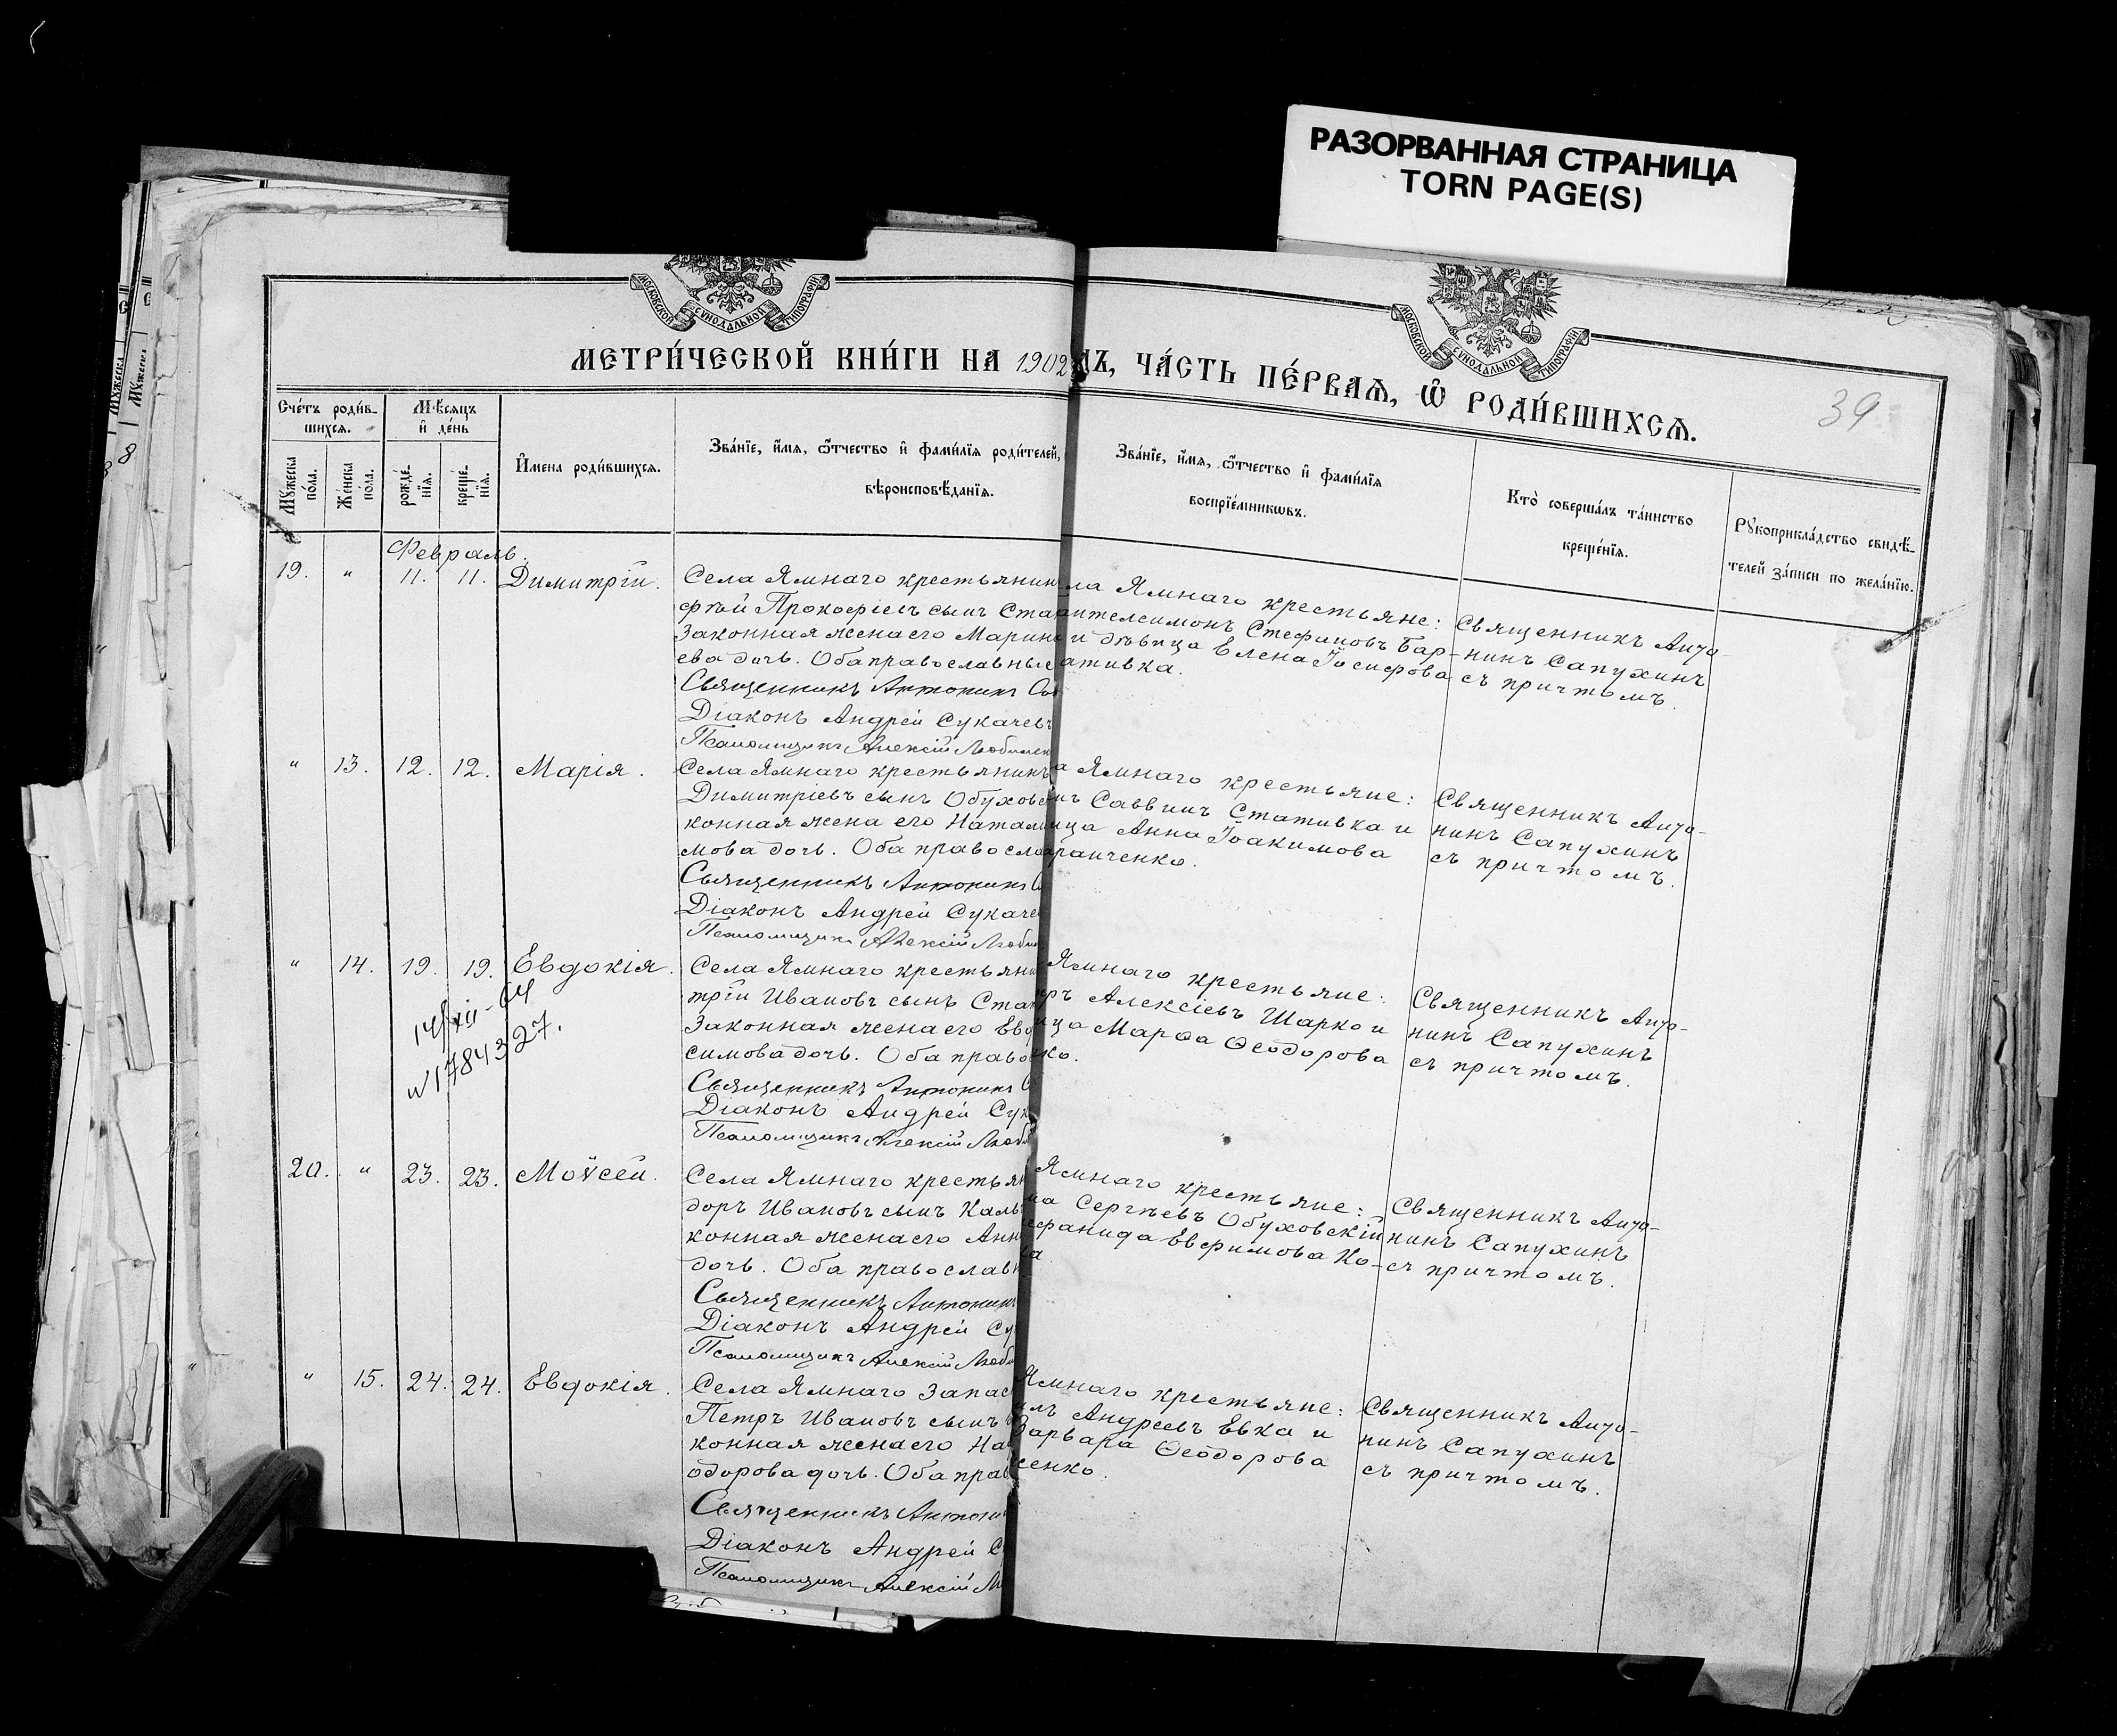 РАЗОРВАННАЯ СТРАНИЦА
TORN PAGE(S)
МОСКОВСКОЙ СУНОДАЛЬНОЙ ТИПОГРАФІИ
МОСКОВСКОЙ СУНОДАЛЬНОЙ ТИПОГРАФІИ
МЕТРИ́ЧЕСКОЙ КНИ́ГИ НА 1902 ДЪ, ЧА́СТЬ ПЕ́РВАѦ, Ѡ҆ РОДИ́ВШИХСѦ.
39
Сче́тъ роди́в-
шихся.
Мѣсяцъ
и҆ де́нь
Мꙋ́жеска по́ла.
Же́нска по́ла.
рожде́-
нїя.
креще́-
нїя.
И҆мена роди́вшихся.
Зва́нїе, и҆́мя, ѻ҆́тчество и҆ фами́лїя роди́телей,
вѣроисповѣ́данїя.
Зва́нїе, и҆́мя, ѻ҆́тчество и҆ фами́лїя
воспрїе́мниковъ.
Кто̀ соверша́лъ та́инство
креще́нїя.
Рꙋкоприкла́дство свидѣ́-
телей за́писи по жела́нїю.
Февраль.
19. " 11. 11. Димитрій.
Села Ямнаго крестьянин
фѣй Прокофіевъ сынъ Ста
Законная жена его Марин
ева дочь. Оба православные
Священникъ Антонинъ Са
Діаконъ Андрей Сукачевъ
Псаломщикъ Алексій Любим
ла Ямнаго крестьяне:
антелеимонъ Стефановъ Бар-
и дѣвица Елена Іосифова
ативка.
Священникъ Анто-
нинъ Сапухинъ
съ причтомъ.
" 13. 12. 12. Марія.
Села Ямнаго крестьянинъ
Димитріевъ сынъ Обухов
конная жена его Натал
мова дочь. Оба правосла
Священникъ Антонинъ
Діаконъ Андрей Сукаче
Псаломщикъ Алексій Люби
а Ямнаго крестьяне:
Саввичъ Стативка и
ица Анна Іоакимова
аранченко.
Священникъ Анто-
нинъ Сапухинъ
съ причтомъ.
" 14. 19. 19. Евдокія.
14/XII-64
N 1784327.
Села Ямнаго крестьян
трій Ивановъ сынъ Ста
Законная жена его Евд
симова дочь. Оба право
Священникъ Антонинъ
Діаконъ Андрей Сук
Псаломщикъ Алексій Люб
Ямнаго крестьяне:
тръ Алексіевъ Шарко и
ица Марѳа Ѳеодорова
ко.
Священникъ Анто-
нинъ Сапухинъ
съ причтомъ.
20. " 23. 23. Моѵсей.
Села Ямнаго крестья
доръ Ивановъ сынъ Каль
конная жена его Анн
дочь. Оба православ
Священникъ Антонин
Діаконъ Андрей Су
Псаломщикъ Алексій Люб
Ямнаго крестьяне:
ма Сергѣевъ Обуховскій
ефанида Евфимова Ко-
ва
Священникъ Анто-
нинъ Сапухинъ
съ причтомъ.
" 15. 24. 24. Евдокія.
Села Ямнаго Запас
Петръ Ивановъ сынъ
конная жена его На
одорова дочь. Оба прав
Священникъ Антони
Діаконъ Андрей С
Псаломщикъ Алексій Л
Ямнаго крестьяне:
илъ Андреевъ Евка и
Варвара Ѳеодорова
сенко.
Священникъ Анто-
нинъ Сапухинъ
съ причтомъ.